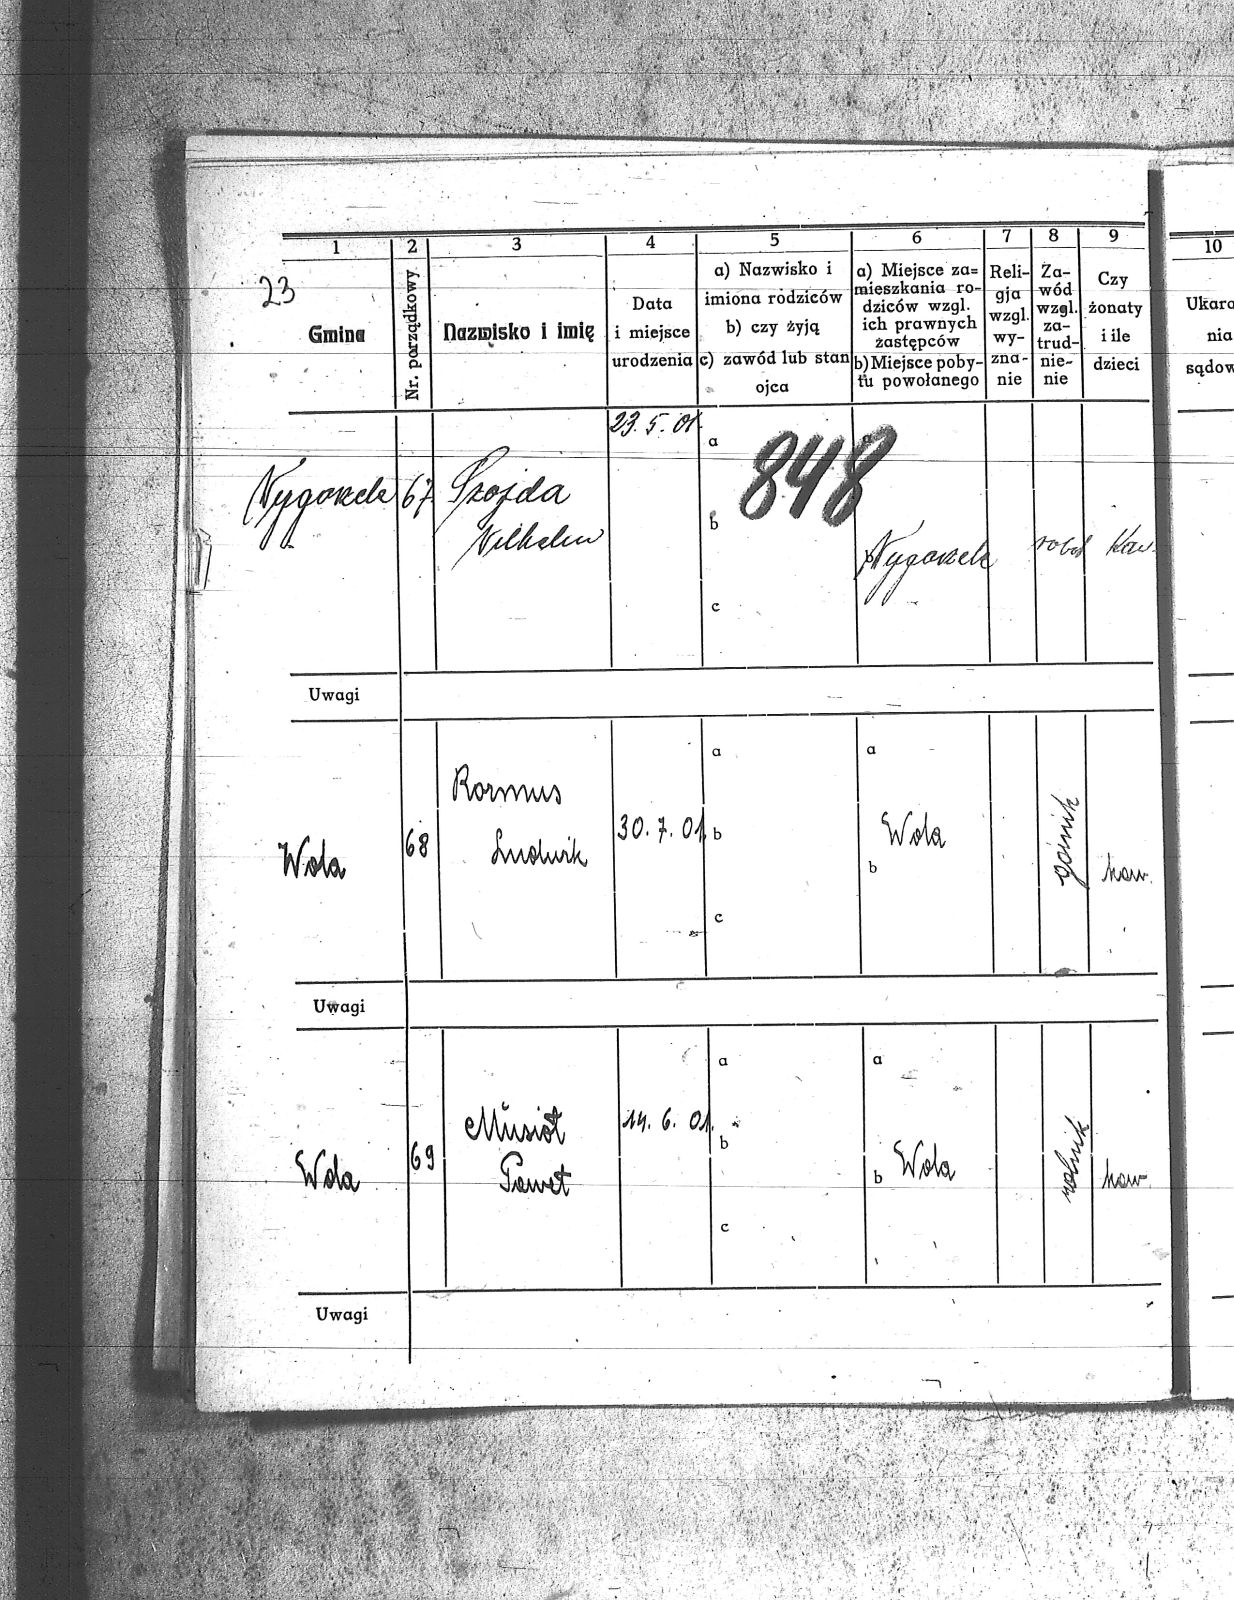 23
1 2 3 4 5 6 7 8 9 10
Gmina
Nr. porządkowy
Nazwisko i imię
Data
i miejsce
urodzenia
a) Nazwisko i
imiona rodziców
b) czy żyją
c) zawód lub stan
ojca
a) Miejsce za=
mieszkania ro-
dziców wzgl.
ich prawnych
zastępców
b) Miejsce poby-
tu powołanego
Reli-
gja
wzgl.
wy-
zna-
nie
Za-
wód
wzgl.
za-
trud-
nie-
nie
Czy
żonaty
i ile
dzieci
Ukara
nia
sądow
23. 5. 01.
a
848
a
67
Wilhelm
b
b
robot
Kaw.
c
Uwagi
a
a
Wola
68
Ludwik
30. 7. 01.
b
Wola
b
górnik
kaw.
c
Uwagi
a
a
Wola
69
Musioł
Paweł
14. 6. 01.
b
b
Wola
rolnik
kaw
c
Uwagi